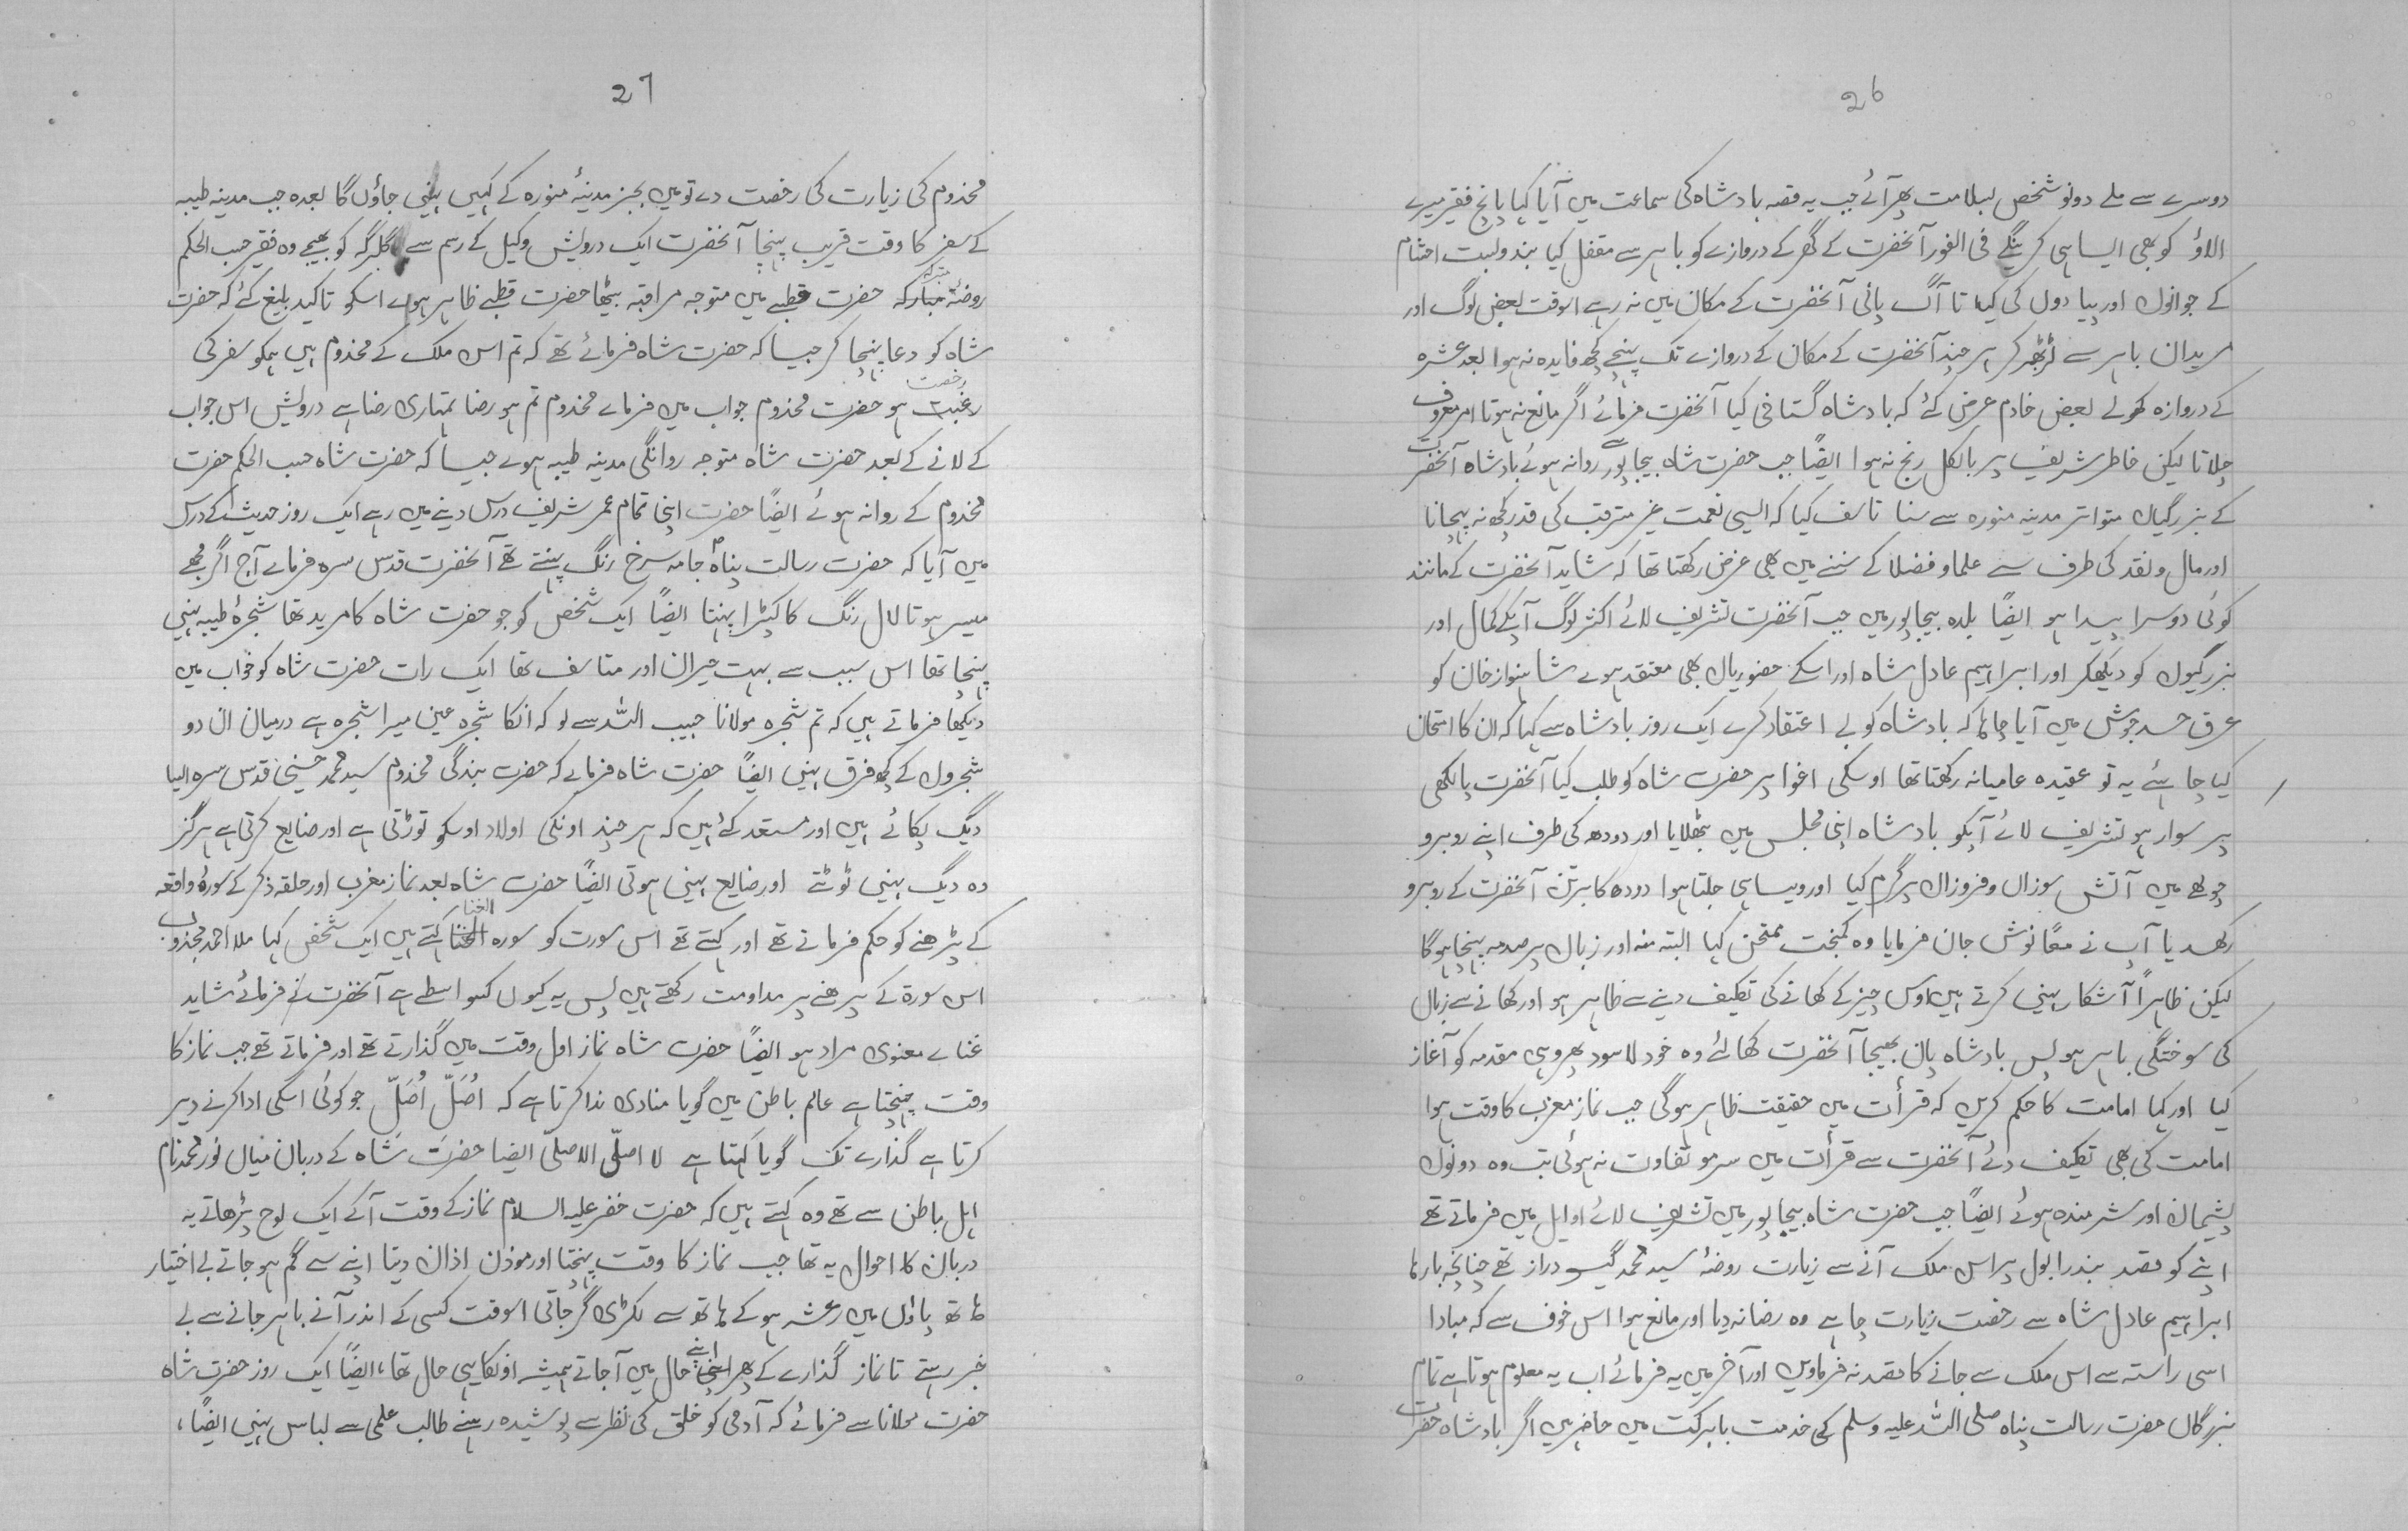 26
دوسرے سے ملے دونو شخص بسلامت پھر آئے جب یہ قصہ بادشاہ کی سماعت میں آیا کہا پانچ فقیر میرے
الاؤ کو بھی ایسا ہی کرینگے فی الفور آنحضرت کے گھر کے دروازے کو باہر سے مقفل کیا بندوبست احشام
کے جوانوں اور پیادوں کی کیا تا آگ پانی آنحضرت کے مکان میں نہ رہے اسوقت بعض لوگ اور
مریدان باہر سے ہر چند آنحضرت کے مکان کے دروازے تک پہنچے کچھ فایدہ نہ ہوا بعد عشرہ
کے دروازہ کھولے بعض خادم عرض کئے کہ بادشاہ گستاخی کیا آنحضرت فرمائے اگر مانع نہ ہوتا امر معروف
چلاتا لیکن خاطر شریف پر بالکل رنج نہ ہوا ایضًا جب حضرت شاہ بیجاپور سے روانہ ہوئے بادشاہ آنحضرت
کے بزرگیاں متواتر مدینہ منورہ سے سنا تاسف کیا کہ ایسی نعمت غیر مترقب کی قدر کچھ نہ پہچانا
اور مال و نقد کی طرف سے علما و فضلا کے سننے میں بھی غرض رکھتا تھا کہ شاید آنحضرت کے مانند
کوئی دوسرا پیدا ہو ایضًا بلدہ بیجاپور میں جب آنحضرت تشریف لائے اکثر لوگ آپکے کمال اور
بزرگیوں کو دیکھکر اور ابراہیم عادل شاہ اور اسکے حضوریاں بھی معتقد ہوے شاہنواز خان کو
عرق حسد جوش میں آیا چاہا کہ بادشاہ کو بے اعتقاد کرے ایک روز بادشاہ سے کہا کہ ان کا امتحان
کیا چاہئے یہ تو عقیدہ عامیانہ رکھتا تھا اوسکی اغوا پر حضرت شاہ کو طلب کیا آنحضرت پالکھی
پر سوار ہو تشریف لائے آپکو بادشاہ اپنی مجلس میں بٹھلایا اور دودھ کی طرف اپنے روبرو
چولھے میں آتش سوزاں و فروزاں پر گرم کیا اور ویسا ہی جلتا ہوا دودہ کا برتن آنحضرت کے روبرو
رکھدیا آپ نے معًا نوش جان فرمایا وہ کمبخت ممتحن کہا البتہ منہ اور زبان پر صدمہ پہنچا ہوگا
لیکن ظاہراً آشکار نہیں کرتے ہیں اوس چیز کے کھانے کی تکلیف دینے سے ظاہر ہو اور کھانے سے زبان
کی سوختگی باہر ہو پس بادشاہ پان بھیجا آنحضرت کھائے وہ خود لاسود پھر وہی مقدمہ کو آغاز
کیا اور کہا امامت کا حکم کریں کہ قرأت میں حقیقت ظاہر ہوگی جب نماز مغرب کا وقت ہوا
امامت کی بھی تکلیف دئے آنحضرت سے قرأت میں سرمو تفاوت نہ ہوئی تب وہ دونوں
پشیمان اور شرمندہ ہوئے ایضًا جب حضرت شاہ بیجاپور میں تشریف لائے اوایل میں فرماتے تھے
اپنے کو قصد بندرابول پر اس ملک آنے سے زیارت روضۂ سید محمد گیسو دراز تھے چنانچہ بارہا
ابراہیم عادل شاہ سے رخصت زیارت چاہے وہ رضا نہ دیا اور مانع ہوا اس خوف سے کہ مبادا
اسی راستہ سے اس ملک سے جانے کا قصد نہ فرماویں اور آخر میں یہ فرمائے اب یہ معلوم ہوتا ہے تمام
بزرگاں حضرت رسالت پناہ صلی اللہ علیہ وسلم کی خدمت بابرکت میں حاضر ہیں اگر بادشاہ حضرت
27
مخدوم کی زیارت کی رخصت دے تو میں بجز مدینۂ منورہ کے کہیں نہیں جاؤں گا بعدہ جب مدینہ طیبہ
کے سفر کا وقت قریب پہنچا آنحضرت ایک درویش وکیل کے رسم سے گلبرگہ کو بھیجے وہ فقیر حسب الحکم
روضۂ متبرکہ حضرت قطبے میں متوجہ مراقبہ بیٹھا حضرت قطبے ظاہر ہوے اسکو تاکید بلیغ کئے کہ حضرت
شاہ کو دعا پہنچا کر جیسا کہ حضرت شاہ فرمائے تھے کہ تم اس ملک کے مخدوم ہیں ہمکو سفر کی
رخصت
رغبت ہو حضرت مخدوم جواب میں فرمائے مخدوم تم ہو رضا تمہاری رضا ہے درویش اس جواب
کے لانے کے بعد حضرت شاہ متوجہ روانگی مدینہ طیبہ ہوے جیسا کہ حضرت شاہ حسب الحکم حضرت
مخدوم کے روانہ ہوئے ایضًا حضرت اپنی تمام عمر شریف درس دینے میں رہے ایک روز حدیث کے درس
میں آیا کہ حضرت رسالت پناہ جامہ سرخ رنگ پہنتے تھے آنحضرت قدس سرہ فرمائے آج اگر مجھے
میسر ہوتا لال رنگ کا کپڑا پہنتا ایضًا ایک شخص کو جو حضرت شاہ کا مرید تھا شجرۂ طیبہ نہیں
پہنچا تھا اس سبب سے بہت حیران اور متاسف تھا ایک رات حضرت شاہ کو خواب میں
دیکھا فرماتے ہیں کہ تم شجرہ مولانا حبیب اللہ سے لو کہ انکا شجرہ عین میرا شجرہ ہے درمیان ان دو
شجروں کے کچھ فرق نہیں ایضًا حضرت شاہ فرمائے کہ حضرت بندگی مخدوم سید محمد حسینی قدس سرہ ایسا
دیگ پکائے ہیں اور مستعد کئے ہیں کہ ہر چند اونکی اولاد اوسکو توڑتی ہے اور ضایع کرتی ہے ہرگز
وہ دیگ نہیں ٹوٹتے اور ضایع نہیں ہوتی ایضًا حضرت شاہ بعد نماز مغرب اور حلقہ ذکر کے سورۂ واقعہ
کے پڑھنے کو حکم فرماتے تھے اور کہتے تھے اس سورت کو سورہ الغنا کہتے ہیں ایک شخص کہا ملا احمد مجذوب
اس سورۃ کے پڑھنے پر مداومت رکھتے ہیں پس یہ کیوں کسواسطے ہے آنحضرت نے فرمائے شاید
غنائے معنوی مراد ہو ایضًا حضرت شاہ نماز اول وقت میں گذارتے تھے اور فرماتے تھے جب نماز کا
وقت پہنچتا ہے عالم باطن میں گویا منادی ندا کرتا ہے کہ اُصَلّ اُصَلّ جو کوئی اسکی ادا کرنے دیر
کرتا ہے گذارے تک گویا کہتا ہے لا اصلّی الاصلّی ایضا حضرت شاہ کے دربان میاں نور محمد نام
اہل باطن سے تھے وہ کہتے ہیں کہ حضرت خضر علیہ السلام نماز کے وقت آکے ایک لوح پڑھاتے یہ
دربان کا احوال یہ تھا جب نماز کا وقت پہنچتا اور موذن اذان دیتا اپنے سے گم ہو جاتے بے اختیار
ہاتھ پاؤں میں رعشہ ہو کے ہاتھ سے لکڑی گر جاتی اسوقت کسی کے اندر آنے باہر جانے سے بے
خبر رہتے تا نماز گذارے کے پھر اپنے حال میں آجاتے ہمیشہ اونکا یہی حال تھا، ایضًا ایک روز حضرت شاہ
حضرت مولانا سے فرمائے کہ آدمی کو خلق کی نظر سے پوشیدہ رہنے طالب علمی سے لباس نہیں ایضًا،